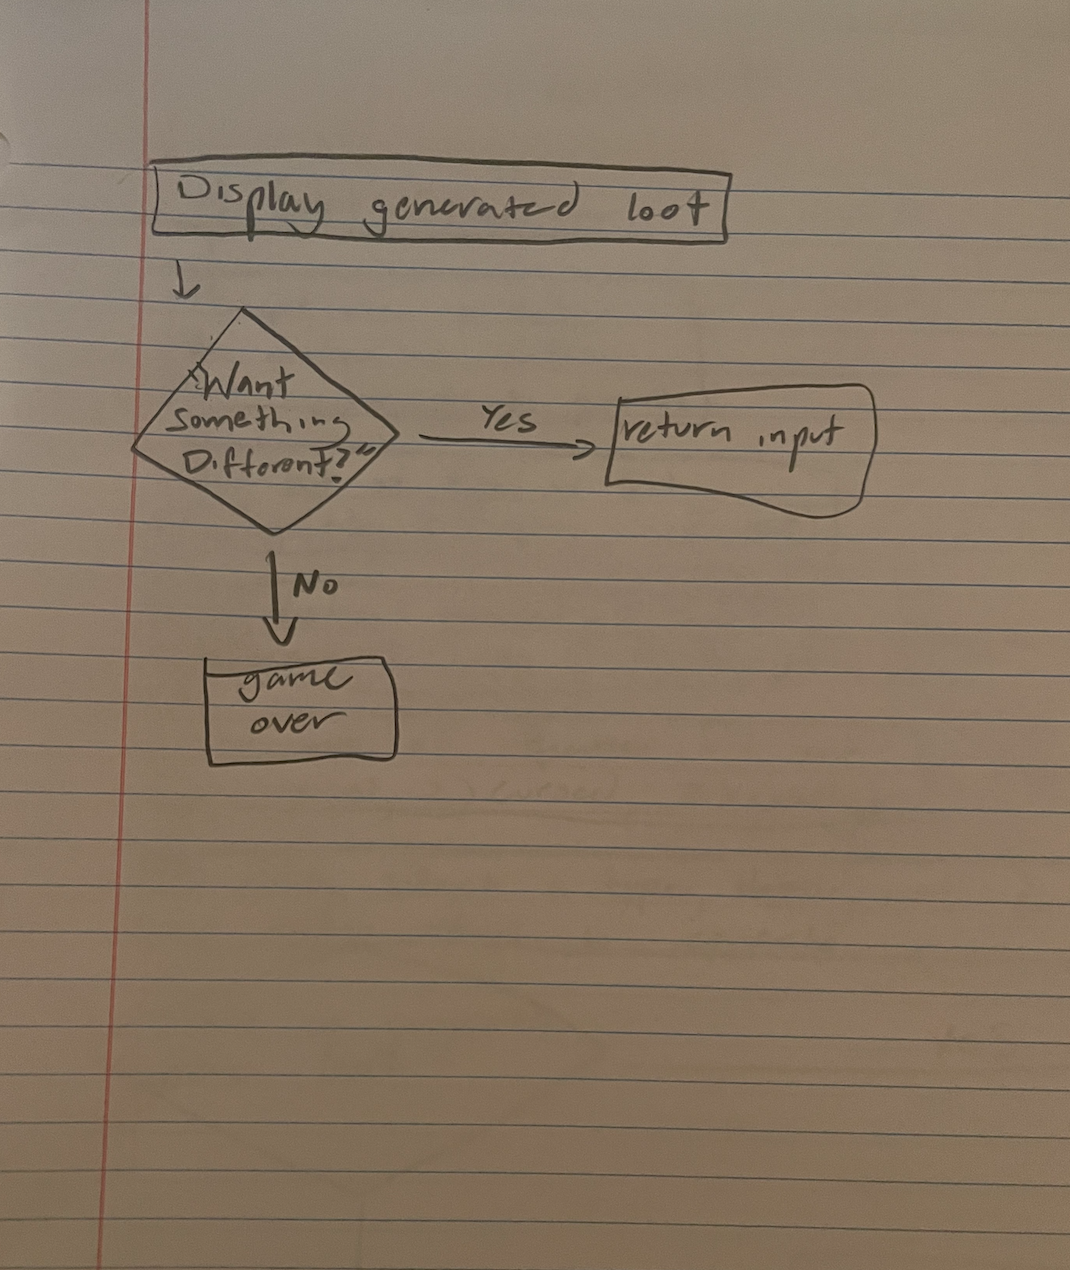 Display generated loot
"Want
something
Different?"
Yes
return input
No
game
over